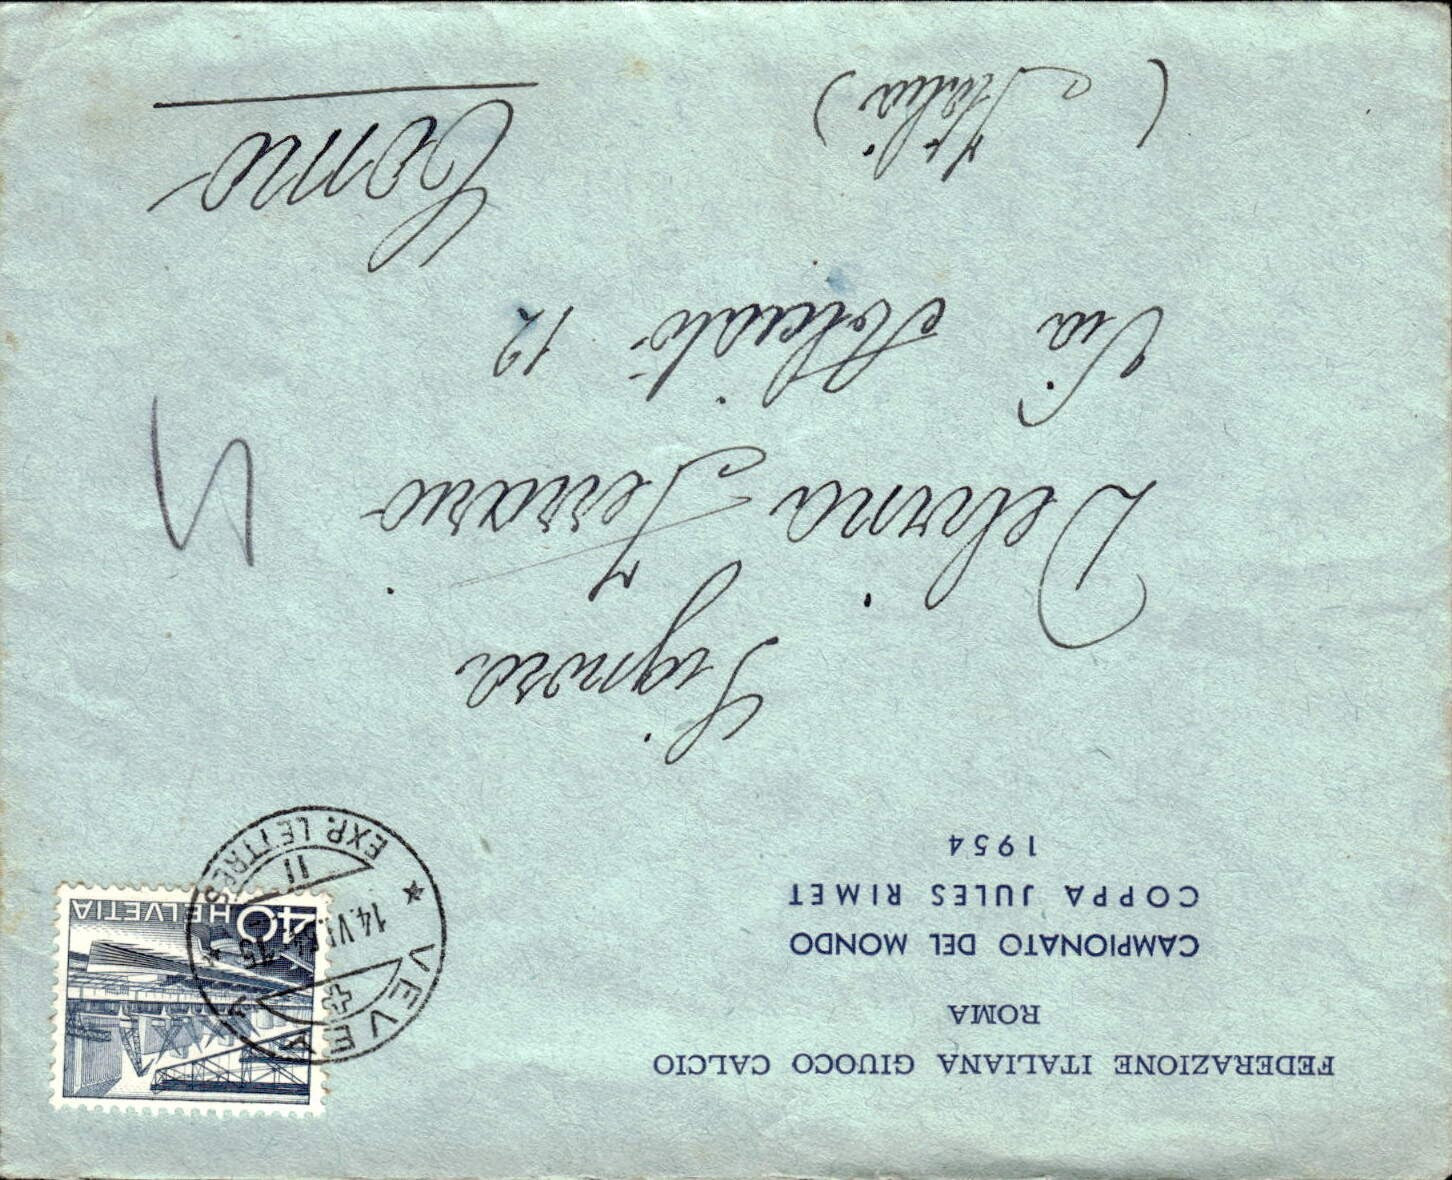 FEDERAZIONE ITALIANA GIUOCO CALCIO
ROMA
CAMPIONATO DEL MONDO
COPPA JULES RIMET
1954
HELVETIA
40
VEVEY
14.VI.54
15
II
EXP. LETTRES
Signora
Delvina Ferrario
Via Alciato 12
Como
(Italia)